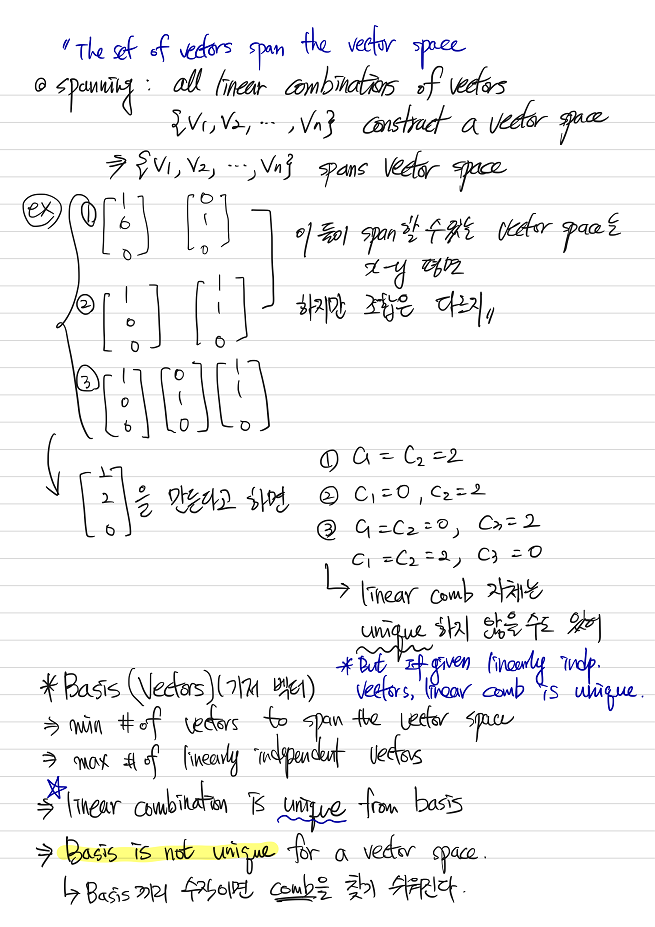 "The set of vectors span the vector space
⊙ spanning : all linear combinations of vectors
{V₁, V₂, ..., Vn} construct a vector space
⇒ {V₁, V₂, ..., Vn} spans vector space
ex) ① [1 0 0] [0 1 0]
이들이 span할 수 있는 vector space는
x-y 평면
② [1 0 0] [1 1 0]
하지만 조합은 다르지"
③ [1 0 0] [0 1 0] [1 1 0]
[2 2 0]을 만든다고 하면
① C₁ = C₂ = 2
② C₁=0, C₂=2
③ C₁=C₂=0, C₃=2
C₁=C₂=2, C₃=0
↳ linear comb 자체는
unique 하지 않을 수도 있어
* But if given linearly indp.
vectors, linear comb is unique.
* Basis (Vectors) (기저 벡터)
⇒ min # of vectors to span the vector space
⇒ max # of linearly independent vectors
☆
⇒ linear combination is unique from basis
⇒ Basis is not unique for a vector space.
↳ Basis끼리 수직이면 comb을 찾기 쉬워진다.